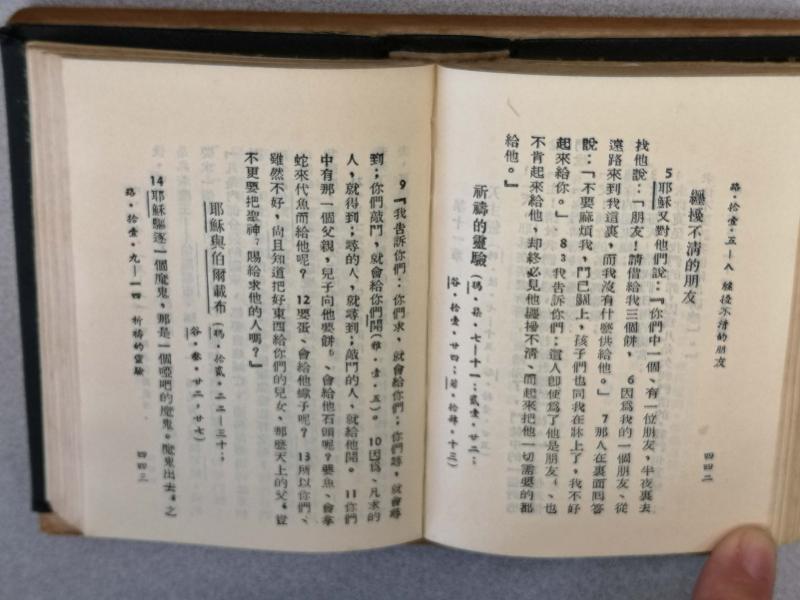 路·拾壹·五—八 纏擾不清的朋友
四四二
纏擾不清的朋友
5 耶穌又對他們說：『你們中一個、有一位朋友，半夜裏去
找他說：「朋友！請借給我三個餅， 6 因爲我的一個朋友、從
遠路來到我這裏，而我沒有什麼供給他。」 7 那人在裏面回答
說：「不要麻煩我，門已關上，孩子們也同我在牀上了，我不好
起來給你。」 8 我告訴你們：這人卽使爲了他是朋友、也
不肯起來給他，却終必見他纏擾不淸、而起來把他一切需要的都
給他。』
祈禱的靈驗（瑪·柒·七—十一；貳壹·廿二；
谷·拾壹·廿四；若·拾肆·十三）
9 『我告訴你們：你們求，就會給你們；你們尋，就會尋
到；你們敲門，就會給你們開（雅·壹·五）。 10 因爲、凡求的
人，就得到；尋的人，就尋到；敲門的人，就給他開。 11 你們
中有那一個父親，兒子向他要餅、會給他石頭呢？要魚、會拿
蛇來代魚而給他呢？ 12 要蛋、會給他蠍子呢？ 13 所以你們、
雖然不好，尚且知道把好東西給你們的兒女、那麼天上的父，豈
不更要把聖神、賜給求他的人嗎？』
耶穌與伯爾載布（瑪·拾貳·二二—三十；
谷·叁·廿二，廿七）
14 耶穌驅逐一個魔鬼，那是一個啞吧的魔鬼。魔鬼出去，之
路·拾壹·九—一四 祈禱的靈驗
四四三